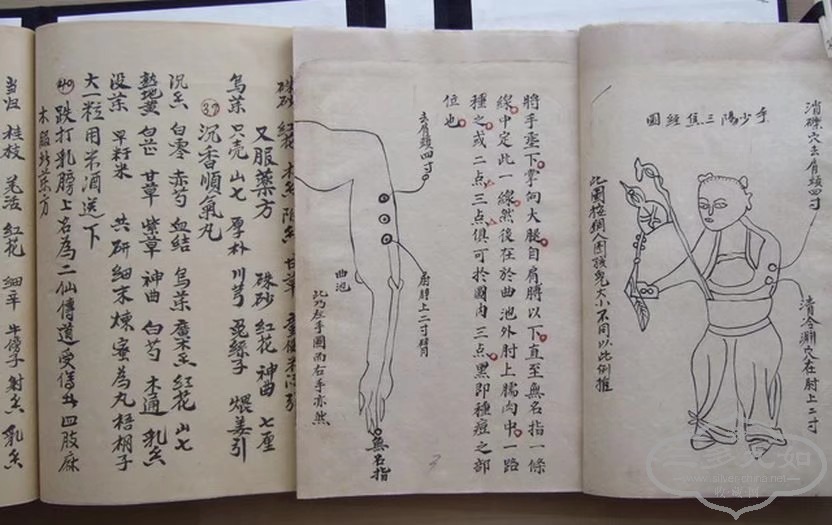 消礫穴去肩頭四寸
清冷淵穴在肘上二寸
手少陽三焦經圖
此圖按銅人圖孩兒大小不同以此例推
將手垂下掌向大腿自肩膊以下直至無名指一條
線中定此一線然後在於曲池外肘上臑肉中一路
種之或二点三点俱可於圖內三点黑即種痘之部
位也
去肩頭四寸
肘上二寸臂
曲池
此乃左手圖而右手亦然
無名指
硃砂 紅花 木香 甘草
又服藥方 硃砂 紅花 神曲 七厘
烏藥 只壳 山七 厚朴 川芎 兔絲子 煨姜引
37 沉香順氣丸
沉香 白零 赤芍 血結 烏藥 廣木香 紅花 山七
熟地黄 白芷 甘草 紫草 神曲 白芍 木通 乳香
没藥 早籽米 共研細末煉蜜為丸梧桐子
大一粒用米酒送下
40 跌打乳膀上名為二仙傳道受傷出四肢麻
木服此藥方
当归 桂枝 羌活 红花 細辛 牛傍子 射香 乳香